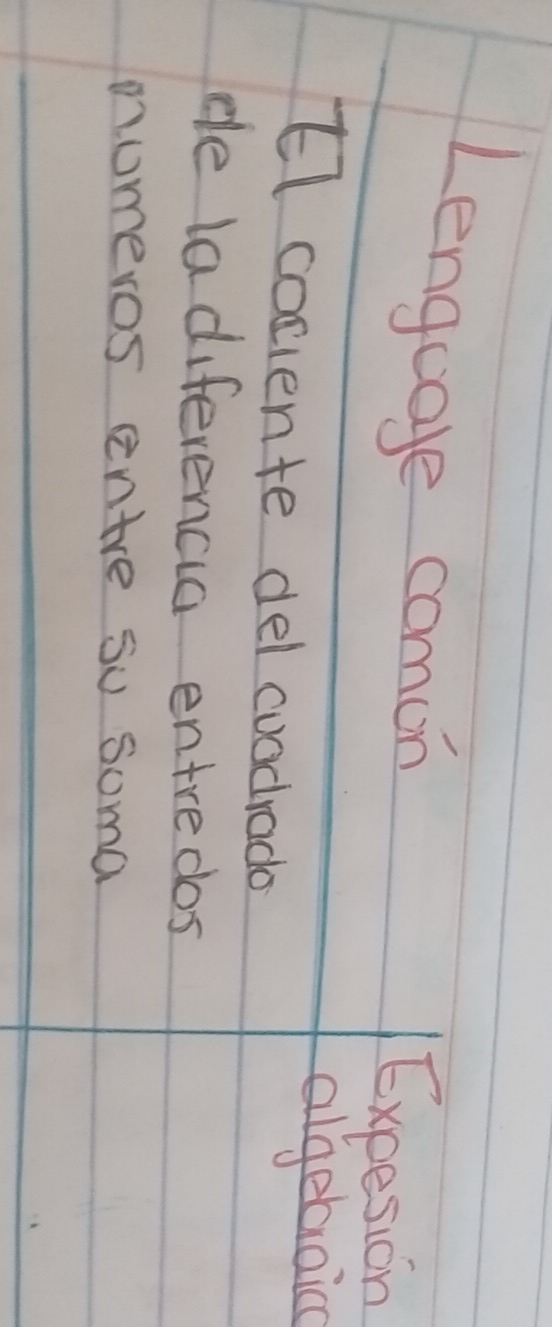 Lenguaje común
Expesión
algebraica
El cociente del cuadrado
de la diferencia entre dos
numeros entre su suma